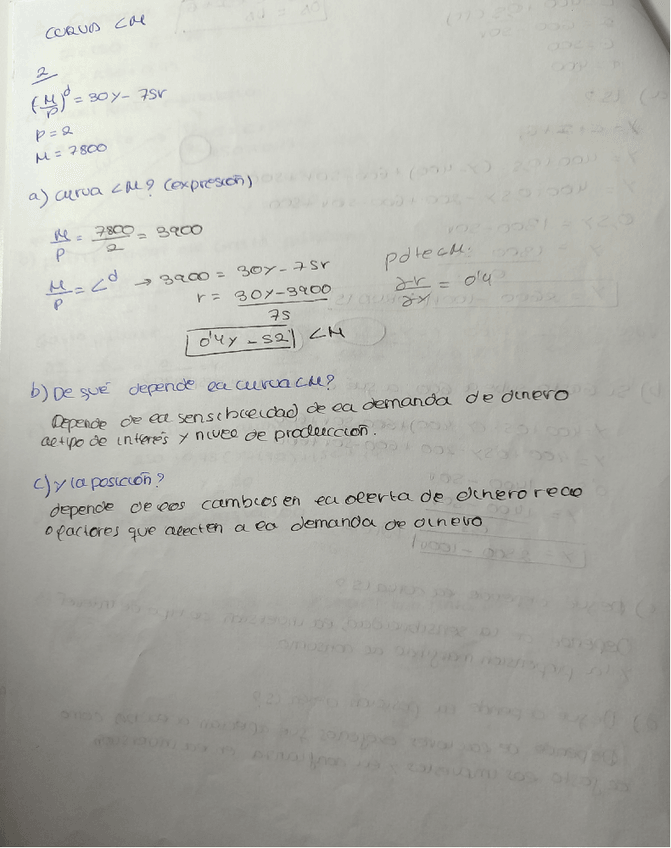 CURVA LM
2
(M/P)^d = 30Y - 75r
P = 2
M = 7800
a) curva LM? (expresión)
M/P = 7800/2 = 3900
M/P = L^d → 3900 = 30Y - 75r
r = 30Y-3900/75
0'4Y - 52 LM
pdteLM:
∂r/∂Y = 0'4
b) De qué depende la curva LM?
Depende de la sensibilidad de la demanda de dinero
al tipo de interés y nivel de producción.
c) y la posición?
depende de los cambios en la oferta de dinero real
o factores que afecten a la demanda de dinero